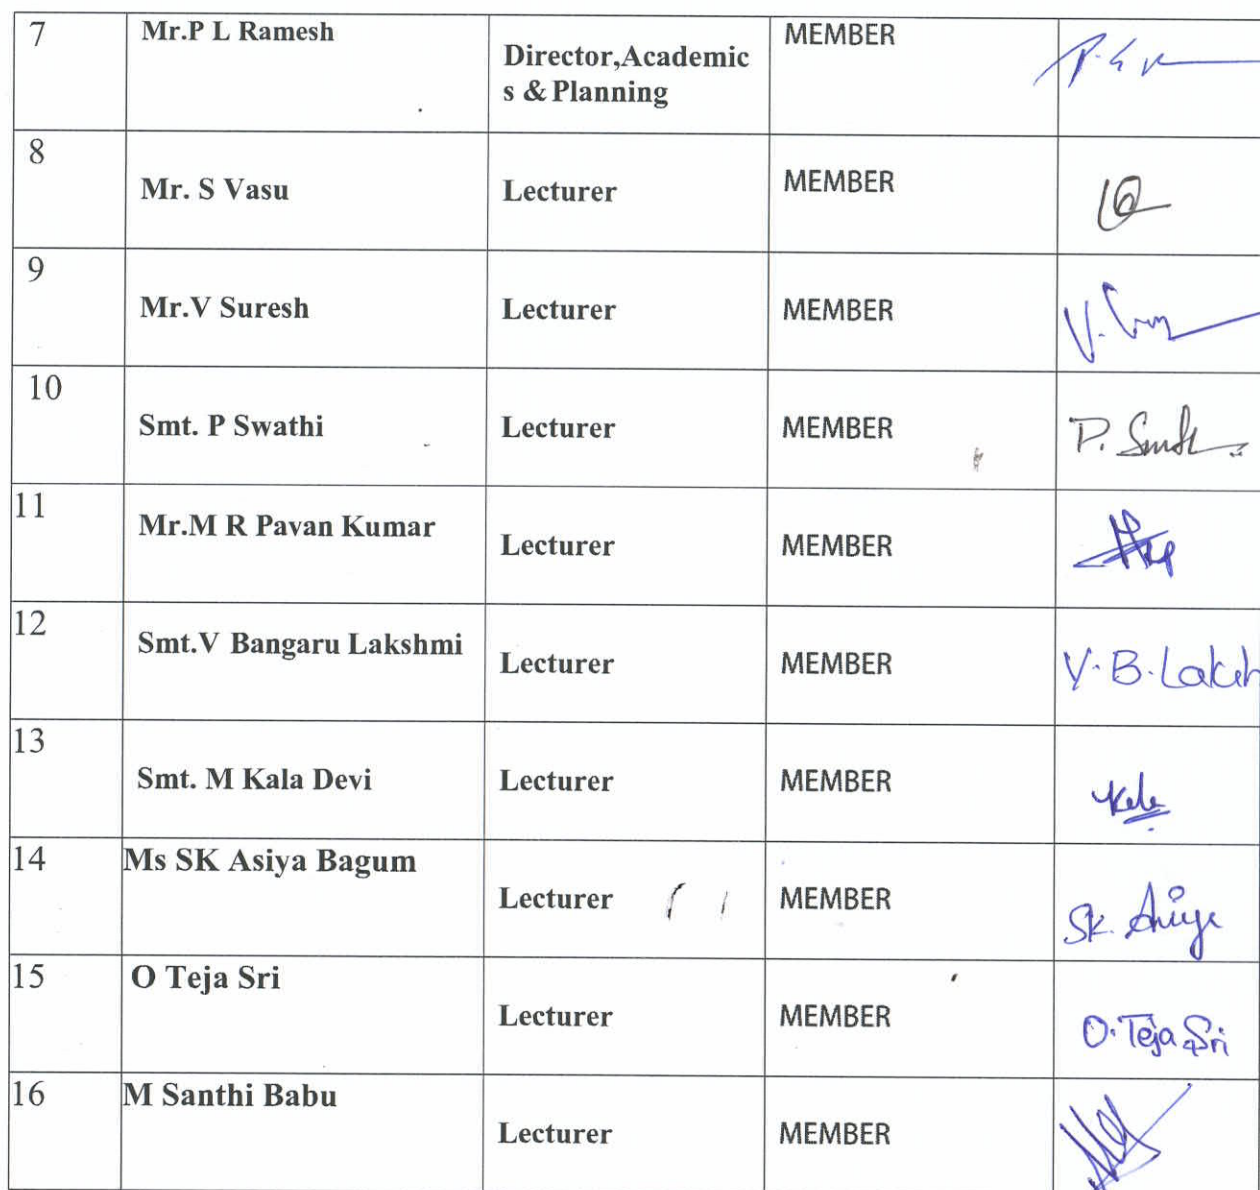 7 Mr.P L Ramesh Director,Academic MEMBER
s & Planning
8 Mr. S Vasu Lecturer MEMBER
9 Mr.V Suresh Lecturer MEMBER V.
10 Smt. P Swathi Lecturer MEMBER P.
11 Mr.M R Pavan Kumar Lecturer MEMBER
12 Smt.V Bangaru Lakshmi Lecturer MEMBER V.B.Laksh
13 Smt. M Kala Devi Lecturer MEMBER
14 Ms SK Asiya Bagum Lecturer MEMBER SK.
15 O Teja Sri Lecturer MEMBER O.Teja Sri
16 M Santhi Babu Lecturer MEMBER